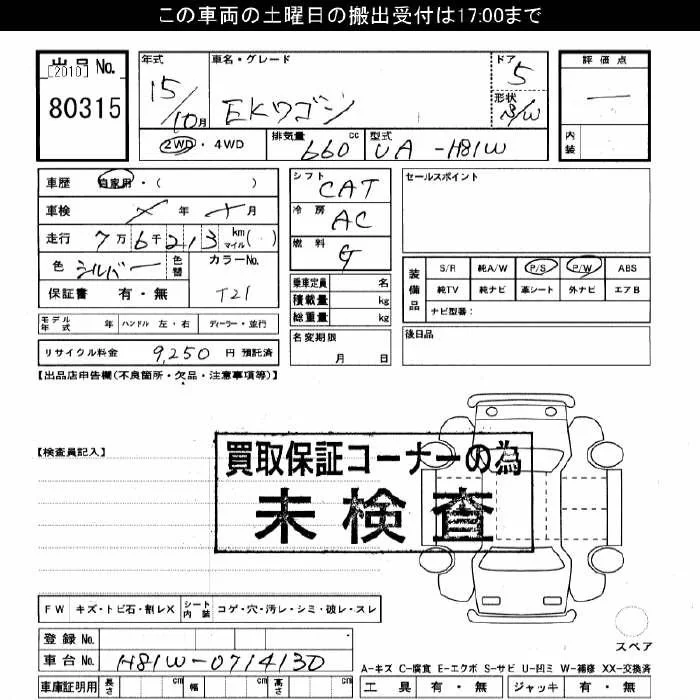 この車両の土曜日の搬出受付は17:00まで
出品No. [2010]
80315
年式
15/10月
車名・グレード
EKワゴン
ドア
5
形状
S/W
評価点
―
内装
2WD・4WD
排気量
660cc
型式
UA-H81W
車歴 自家用・( )
車検 年 月
走行 7万6千213 km マイル( )
色 シルバー 色替 カラーNo.
T21
保証書 有・無
シフト
CAT
冷房
AC
燃料
G
乗車定員 名
積載量 kg
総重量 kg
セールスポイント
装備品
S/R 純A/W P/S P/W ABS
純TV 純ナビ 革シート 外ナビ エアB
ナビ型番:
モデル年式 年 ハンドル 左・右 ディーラー・並行
名変期限
月 日
後日品
リサイクル料金 9,250 円 預託済
【出品店申告欄(不良箇所・欠品・注意事項等)】
【検査員記入】
買取保証コーナーの為
未検査
FW キズ・トビ石・割レX シート内装 コゲ・穴・汚レ・シミ・破レ・スレ
スペア
登録No.
車台No. H81W-0714130
A-キズ C-腐食 E-エクボ S-サビ U-凹ミ W-補修 XX-交換済
車庫証明用 長さ cm 幅 cm 高さ cm
工具 有・無 ジャッキ 有・無